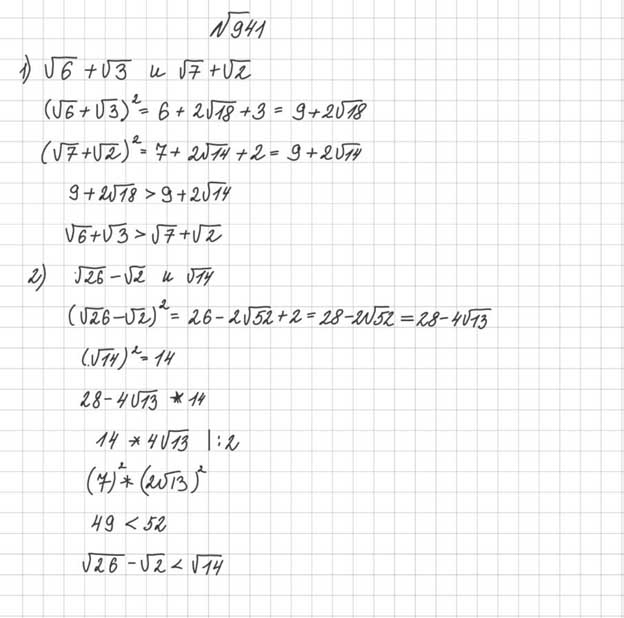 √941
1) √6 + √3 и √7 + √2
(√6 + √3)² = 6 + 2√18 + 3 = 9 + 2√18
(√7 + √2)² = 7 + 2√14 + 2 = 9 + 2√14
9 + 2√18 > 9 + 2√14
√6 + √3 > √7 + √2
2) √26 − √2 и √14
(√26 − √2)² = 26 − 2√52 + 2 = 28 − 2√52 = 28 − 4√13
(√14)² = 14
28 − 4√13 * 14
14 * 4√13 | : 2
(7)² * (2√13)²
49 < 52
√26 − √2 < √14